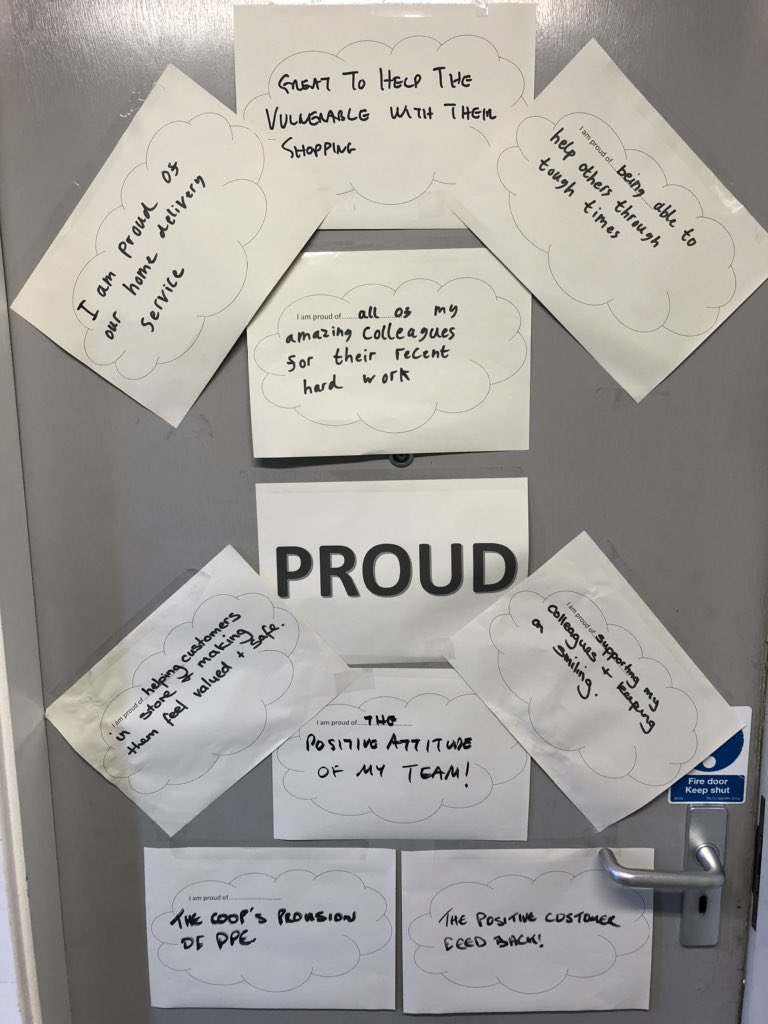 GREAT TO HELP THE
VULNERABLE WITH THEIR
SHOPPING
I am proud of
our home delivery
service
I am proud of being able to
help others through
tough times
I am proud of......all of my
amazing colleagues
for their recent
hard work
PROUD
I am proud of helping customers
in store & making
them feel valued + safe.
I am proud of supporting my
colleagues + keeping
on smiling.
I am proud of...THE............
POSITIVE ATTITUDE
OF MY TEAM!
I am proud of.............................
THE COOP'S PROVISION
OF PPE
THE POSITIVE CUSTOMER
FEED BACK!
Fire door
Keep shut